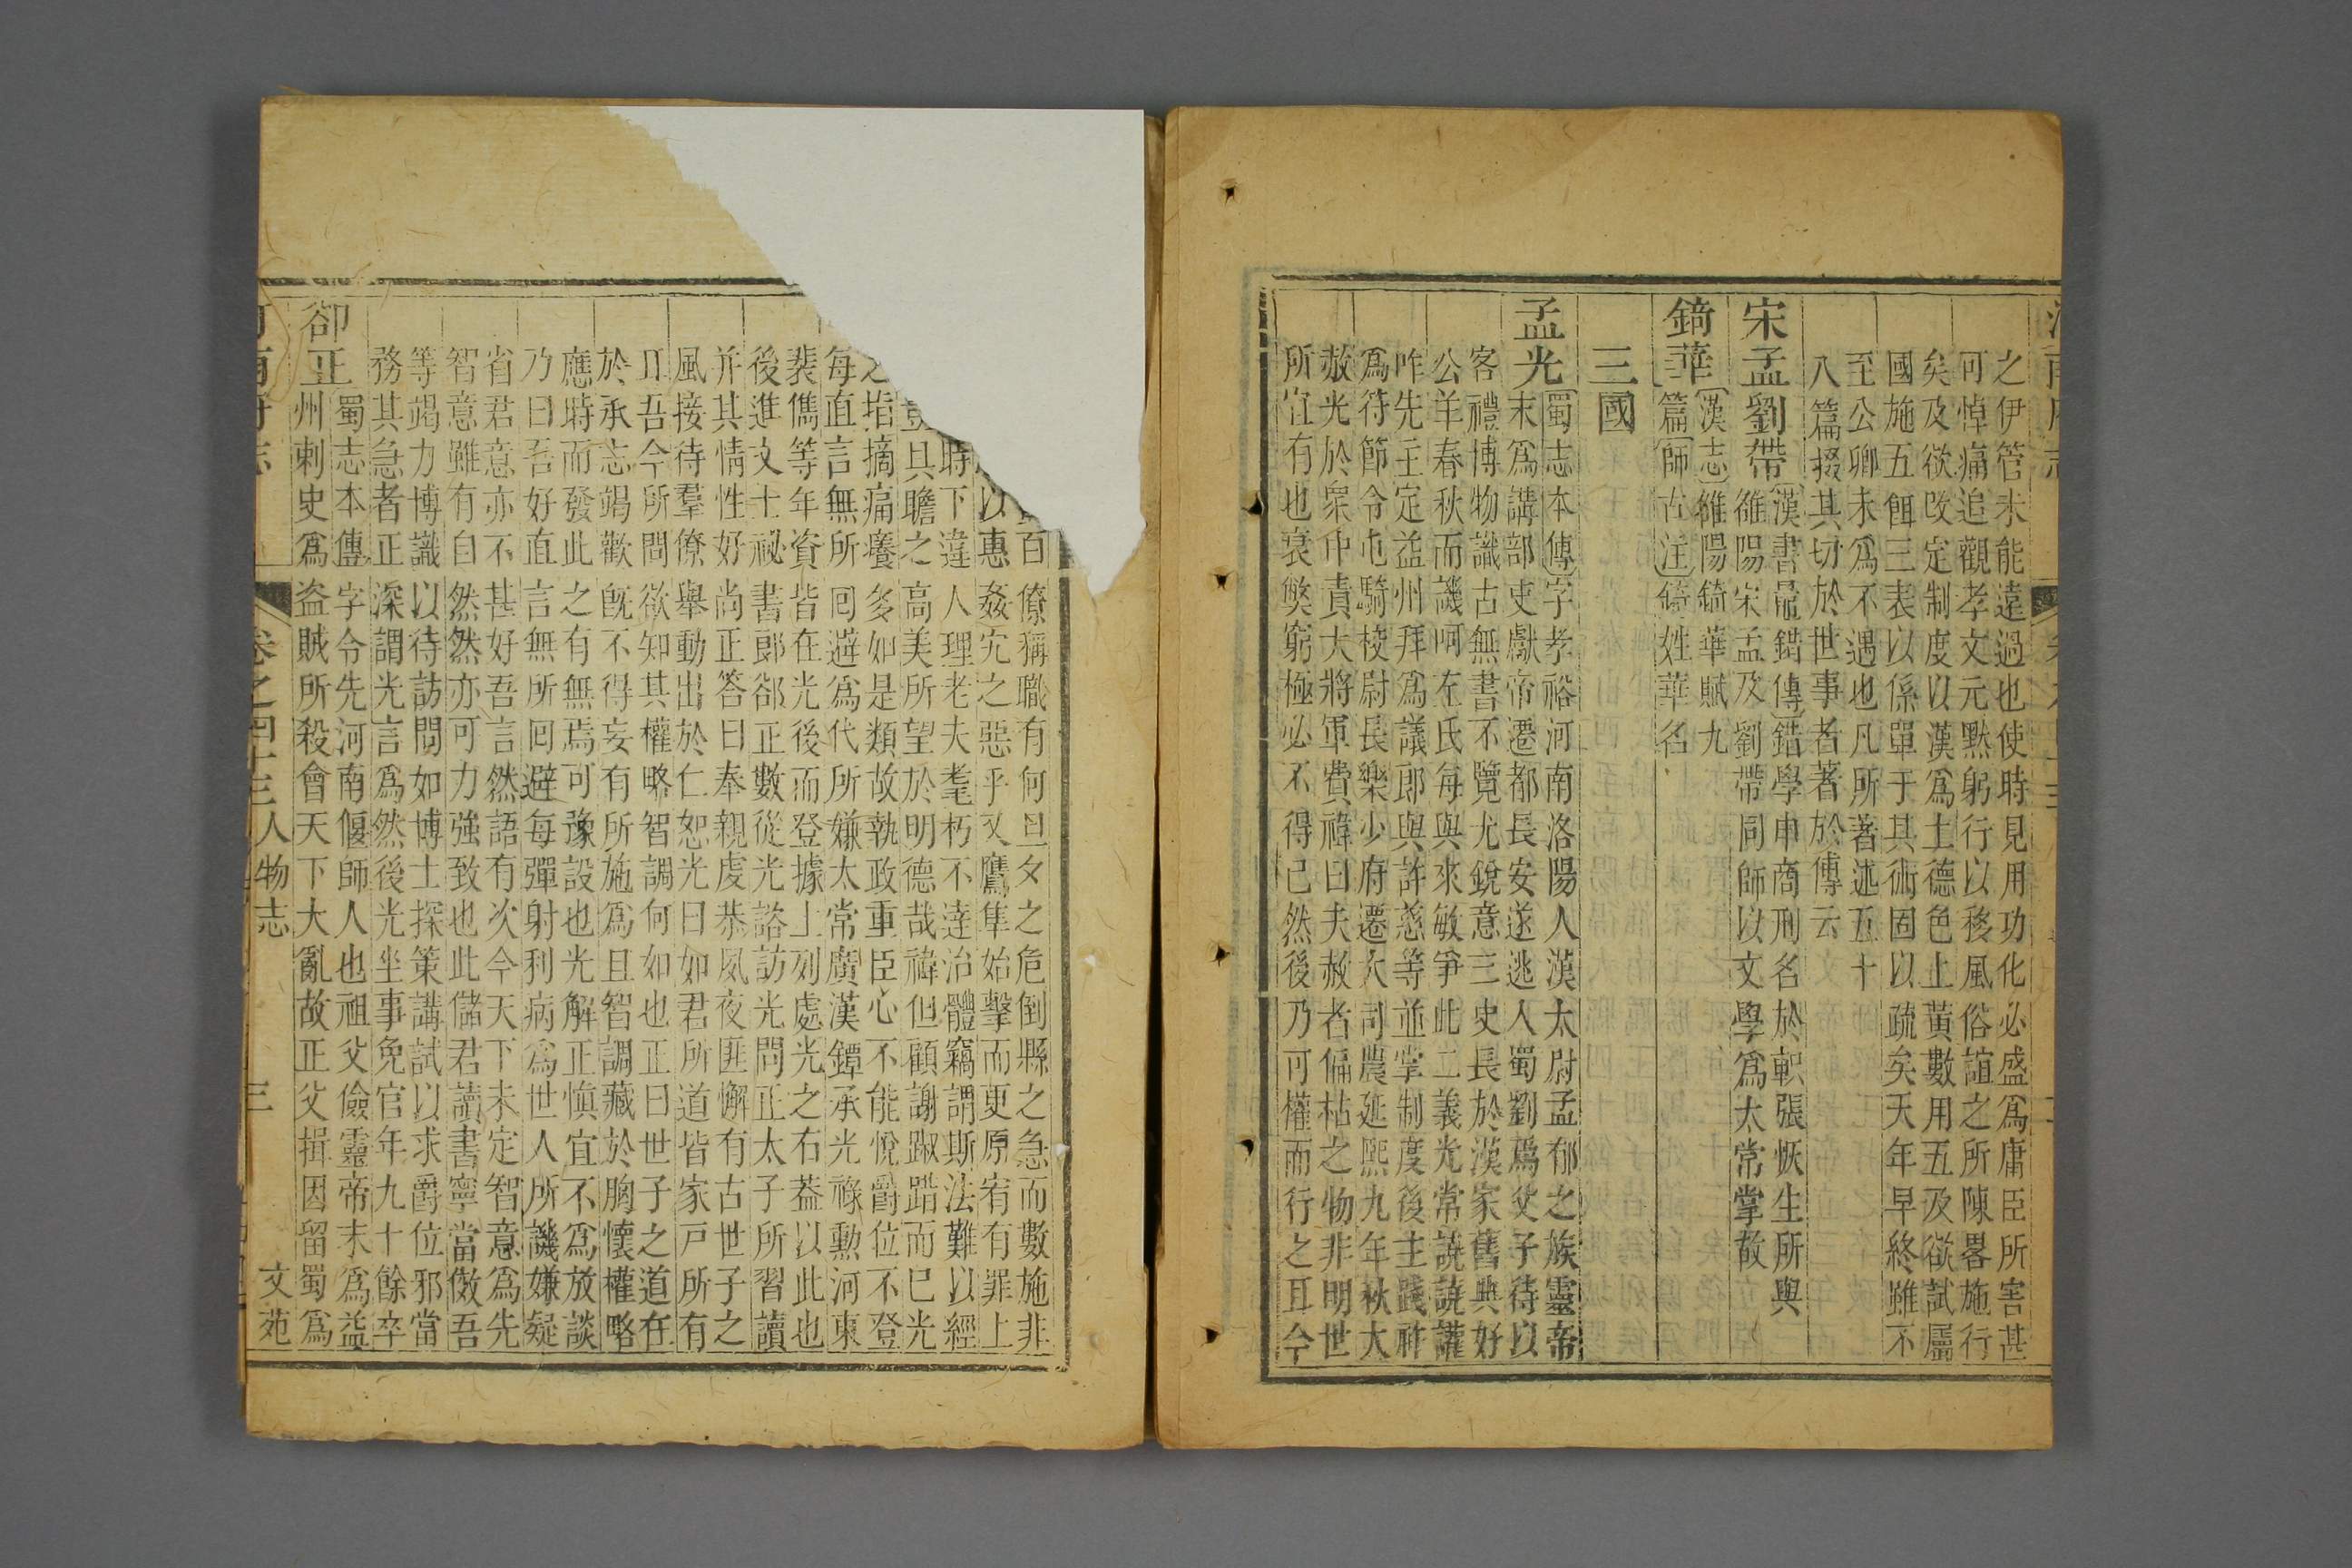 之伊管未能遠過也使時見用功化必盛爲庸臣所害甚
可悼痛追觀孝文元默躬行以移風俗誼之所陳畧施行
矣及欲改定制度以漢爲土德色上黃數用五及欲試屬
國施五餌三表以係單于其術固以疏矣天年早終雖不
至公卿未爲不遇也凡所著述五十
八篇掇其切於世事者著於傳云
宋孟劉帶漢書鼂錯傳錯學申商刑名於軹張恢生所與
雒陽宋孟及劉帶同師以文學爲太常掌故
錡華漢志雒陽錡華賦九
篇師古注錡姓華名
三國
孟光蜀志本傳字孝裕河南洛陽人漢太尉孟郁之族靈帝
末爲講部吏獻帝遷都長安遂逃入蜀劉焉父子待以
客禮博物識古無書不覽尤銳意三史長於漢家舊典好
公羊春秋而譏呵左氏每與來敏爭此二義光常譊譊讙
咋先主定益州拜爲議郎與許慈等並掌制度後主踐祚
爲符節令屯騎校尉長樂少府遷大司農延熙九年秋大
赦光於衆中責大將軍費禕曰夫赦者偏枯之物非明世
所宜有也衰弊窮極必不得已然後乃可權而行之耳今
百僚稱職有何旦夕之危倒縣之急而數施非
以惠姦宄之惡乎又鷹隼始擊而更原宥有罪上
時下違人理老夫耄朽不達治體竊謂斯法難以經
具瞻之高美所望於明德哉禕但顧謝踧踖而已光
之指摘痛癢多如是類故執政重臣心不能悅爵位不登
每直言無所囘避爲代所嫌太常廣漢鐔承光祿勳河東
裴儁等年資皆在光後而登據上列處光之右葢以此也
後進文士祕書郎郤正數從光諮訪光問正太子所習讀
并其情性好尚正答曰奉親虔恭夙夜匪懈有古世子之
風接待羣僚舉動出於仁恕光曰如君所道皆家戸所有
耳吾今所問欲知其權略智調何如也正曰世子之道在
於承志竭歡旣不得妄有所施爲且智調藏於胸懷權略
應時而發此之有無焉可豫設也光解正慎宜不爲放談
乃曰吾好直言無所囘避每彈射利病爲世人所譏嫌疑
省君意亦不甚好吾言然語有次今天下未定智意爲先
智意雖有自然然亦可力強致也此儲君讀書寧當傚吾
等竭力博識以待訪問如博士探策講試以求爵位邪當
務其急者正深謂光言爲然後光坐事免官年九十餘卒
郤正蜀志本傳字令先河南偃師人也祖父儉靈帝末爲益
州刺史爲盜賊所殺會天下大亂故正父揖因留蜀爲
卷之四十三人物志 文苑 三